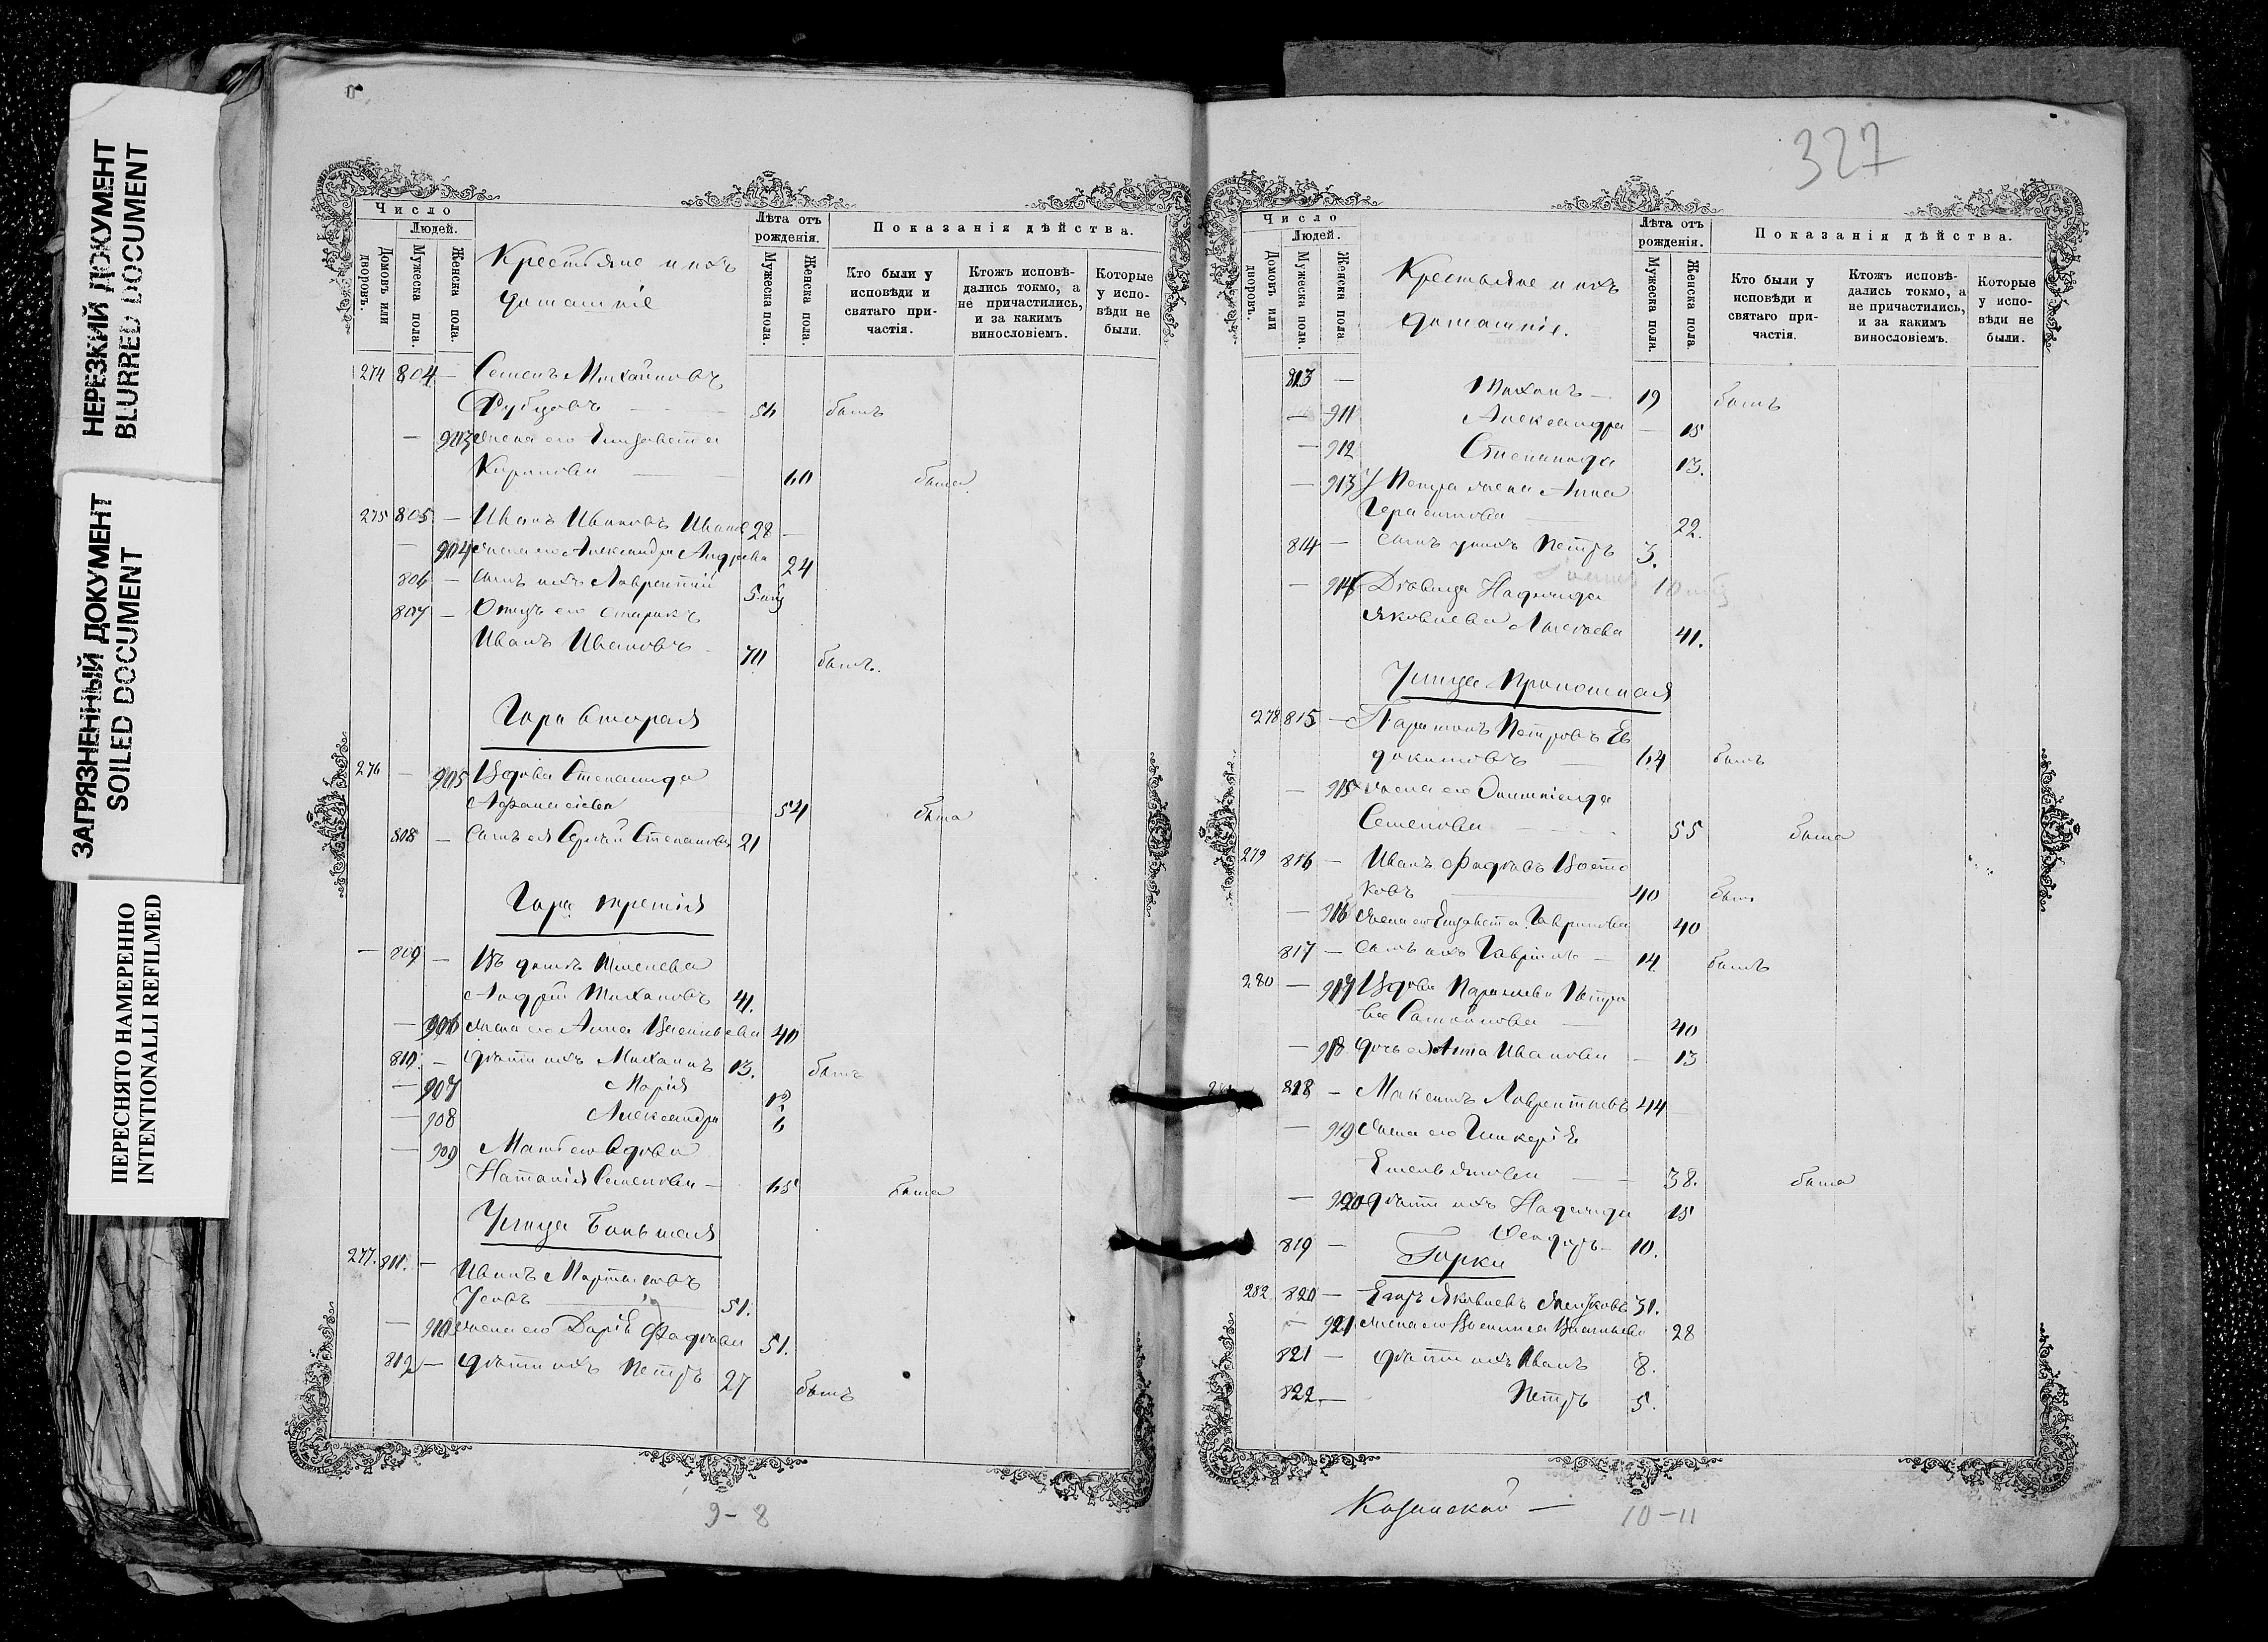 НЕРЕЗКИЙ ДОКУМЕНТ
BLURRED DOCUMENT
ЗАГРЯЗНЕННЫЙ ДОКУМЕНТ
SOILED DOCUMENT
ПЕРЕСНЯТО НАМЕРЕННО
INTENTIONALLI REFILMED
Число
Людей.
Домовъ или дворовъ.
Мужеска пола.
Женска пола.
Крестьяне и ихъ
домашніе
Лѣта отъ рожденія.
Мужеска пола.
Женска пола.
Показанія дѣйства.
Кто были у исповѣди и святаго причастія.
Ктожъ исповѣдались токмо, а не причастились, и за какимъ винословіемъ.
Которые у исповѣди не были.
274 804 — Семенъ Михайловъ
Рубцовъ — 56 былъ
— 903 Жена его Елизавета
Кирилова — 60 была
275 805 — Иванъ Ивановъ 28 —
— 904 Жена его Александра Андреева 24
806 — Сынъ ихъ Лаврентій 5
807 — Отецъ его старикъ
Иванъ Ивановъ 70 былъ.
Гора вторая
276 — 905 Вдова Степанида
Афанасіева 54 была
808 — Сынъ ея Сергѣй Степановъ 21
Гора третія
— 809 — Въ домѣ
Андрей Михайловъ 41.
— 906 Жена его Анна Васильева 40
810. — Дѣти ихъ Михаилъ 13. былъ
— 907 Марія
— 908 Александра 6
— 909 Мать его вдова
Наталія Семенова — 65 была
Улица Большая
277. 811. — Иванъ
Усовъ — 51.
— 910 Жена его Дарія 51.
812 — Дѣти ихъ Петръ 27 былъ
9-8
327
Число
Людей.
Домовъ или дворовъ.
Мужеска пола.
Женска пола
Крестьяне и ихъ
домашніе.
Лѣта отъ рожденія.
Мужеска пола.
Женска пола.
Показанія дѣйства.
Кто были у исповѣди и святаго причастія.
Ктожъ исповѣдались токмо, а не причастились, и за какимъ винословіемъ.
Которые у исповѣди не были.
813 — 19 былъ
— 911 Александра — 15
— 912 Степанида 13.
— 913 Петра жена Анна
Герасимова 22.
814 — Сынъ у нихъ Петръ 3.
— 914 Дѣвица Надежда
Яковлева 41.
Улица
278 815 — Петровъ Ев
докимовъ — 64 былъ
— 915 Жена его Олимпіада
Семенова 55 была
279 816 — Иванъ
ковъ — 40 былъ
— 916 Жена его Елизавета Гаврилова 40
817 — Сынъ ихъ Гавріилъ — 14. былъ
280 — 917 Вдова Параскева Петро
ва Самойлова — 40
— 918 Дочь ея Анна Иванова — 13
818 — Максимъ Лаврентьевъ 44
— 919 Жена его Гликерія
Емельянова — 38. была
— 920 Дѣти ихъ Надежда 15
819 — Ѳеодоръ — 10.
Горки
282 820 — Егоръ Яковлевъ 31.
— 921 Жена его Василиса Васильева 28
821 — Дѣти ихъ Иванъ 8.
822. — Петръ 5.
Казанской —
10-11